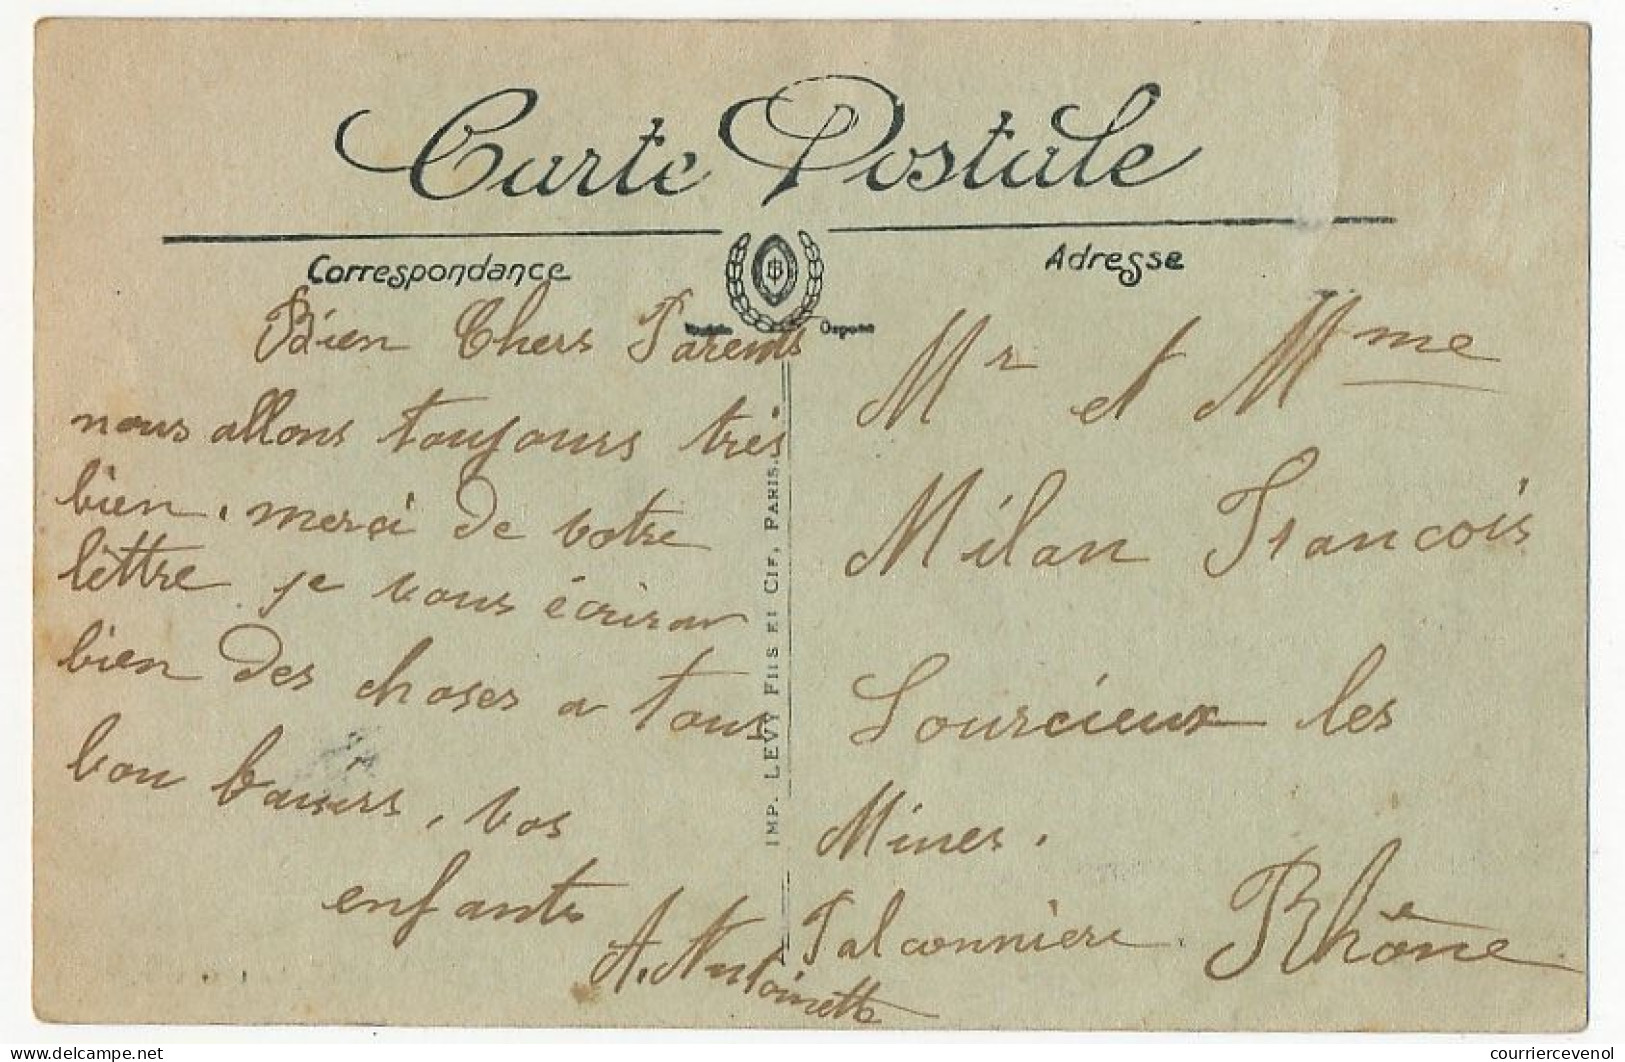 Carte Postale
Correspondance
Adresse
Bien Chers Parents
nous allons toujours très
bien, merci de votre
lèttre je vous écrirar
bien des choses a tous
bon baisers, vos
enfants
A. Antoinette
IMP. LEVY FILS ET CIE, PARIS.
Mr et Mme
Milan Francois
Sourcieux les
Mines.
Falconnière. Rhône
delcampe.net
courriercevenol